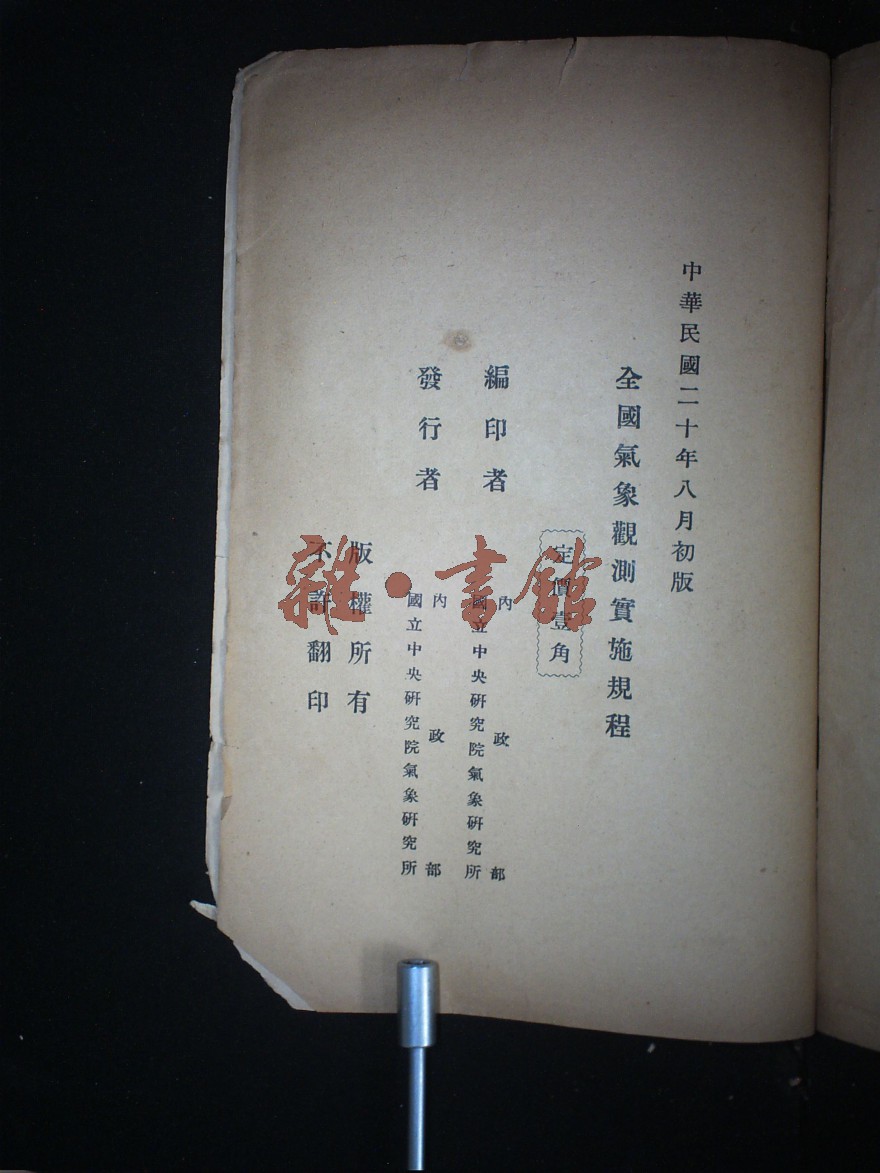 中華民國二十年八月初版
全國氣象觀測實施規程
定價壹角
編印者
內政部
國立中央研究院氣象研究所
發行者
內政部
國立中央研究院氣象研究所
版權所有
不許翻印
雜·書館